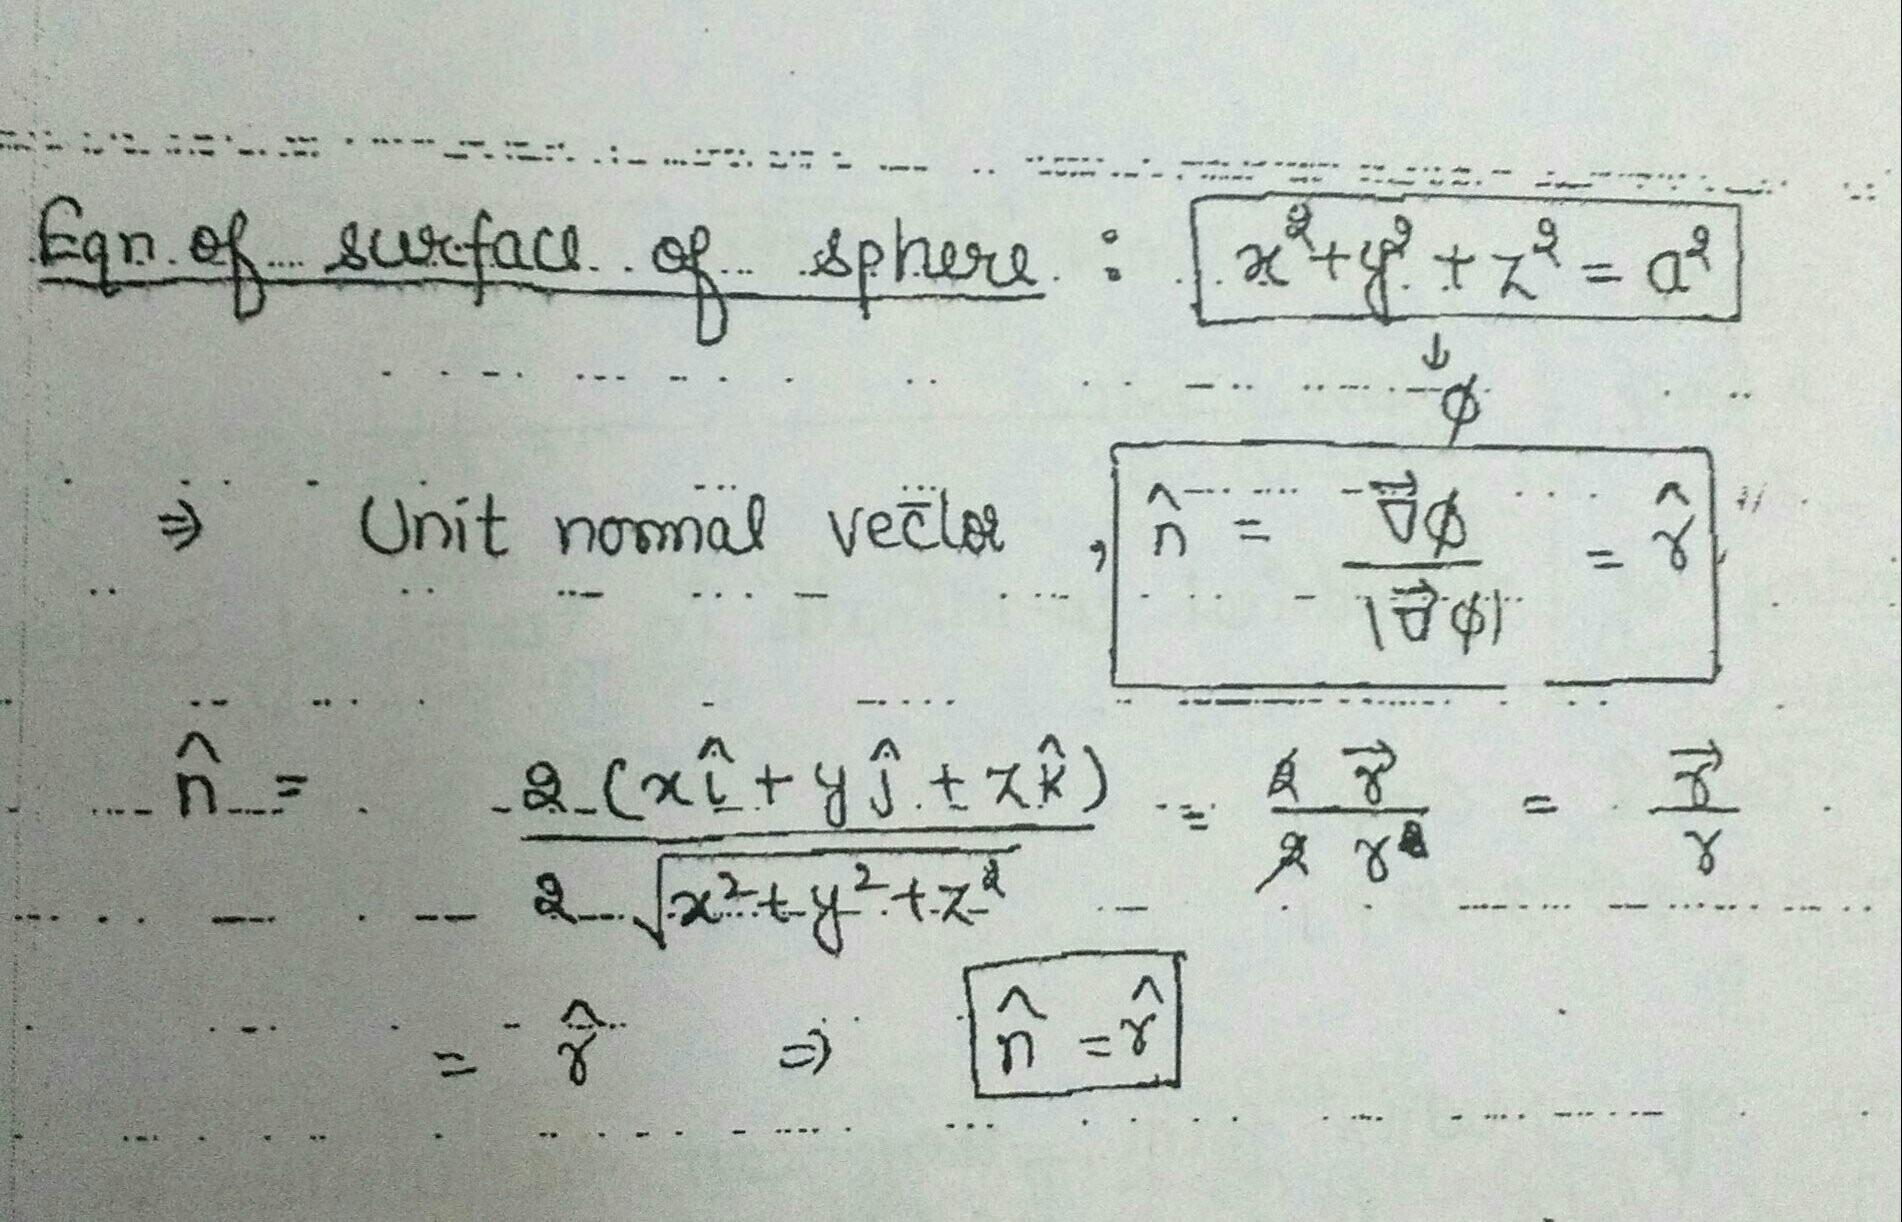 Eqn. of surface of sphere : x² + y² + z² = a²
↓
φ
⇒ Unit normal vector , n̂ = ∇⃗φ / |∇⃗φ| = r̂
n̂ = 2 (x î + y ĵ + z k̂) / 2 √(x² + y² + z²) = 2 r⃗ / 2 r = r⃗ / r
= r̂ ⇒ n̂ = r̂